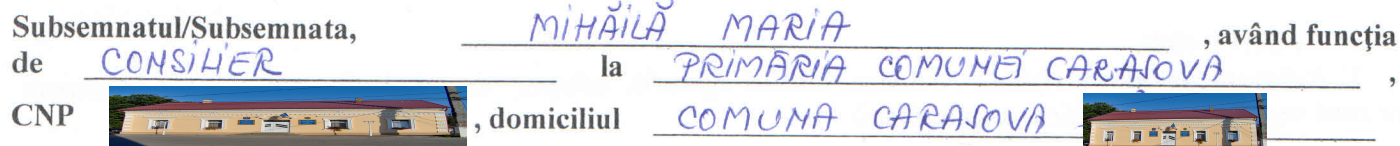 Subsemnatul/Subsemnata, MIHĂILĂ MARIA , având funcţia
de CONSILIER la PRIMĂRIA COMUNEI CARAȘOVA ,
CNP , domiciliul COMUNA CARASOVA ,